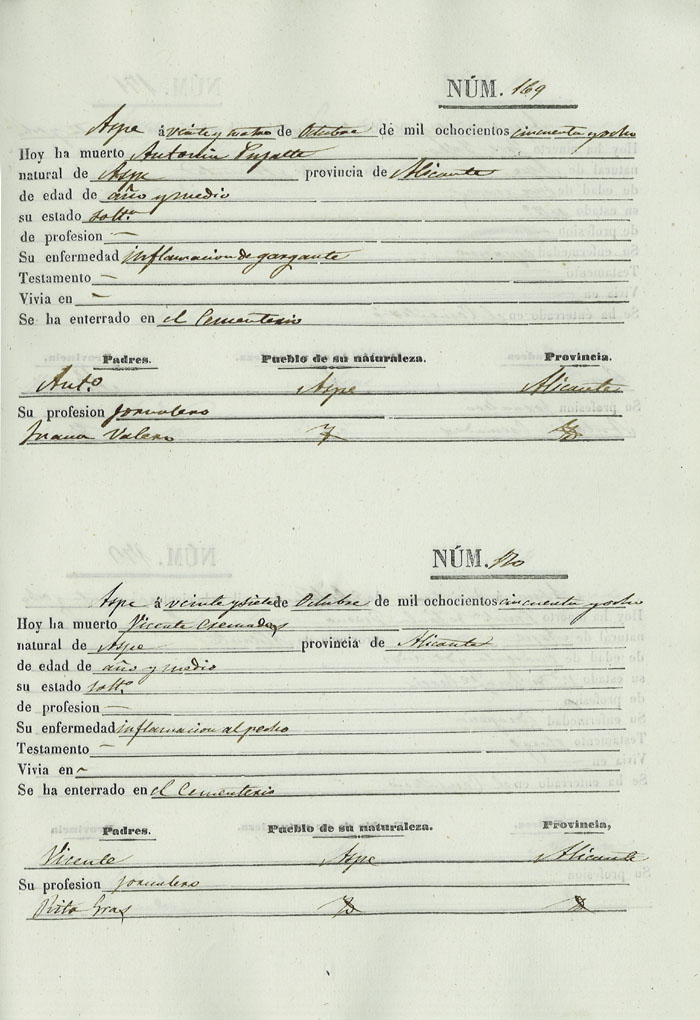 NÚM. 169
Aspe á veinte y cuatro de Octubre de mil ochocientos cincuenta y ocho
Hoy ha muerto Antonia Pujalte
natural de Aspe provincia de Alicante
de edad de año y medio
su estado solt.ª
de profesion —
Su enfermedad inflamacion de garganta
Testamento —
Vivia en —
Se ha enterrado en el Cementerio
Padres. Pueblo de su naturaleza. Provincia.
Ant.o Aspe Alicante
Su profesion jornalero
Juana Valero
NÚM. 170
Aspe á veinte y siete de Octubre de mil ochocientos cincuenta y ocho
Hoy ha muerto Vicente Cremades
natural de Aspe provincia de Alicante
de edad de año y medio
su estado solt.o
de profesion —
Su enfermedad inflamacion al pecho
Testamento —
Vivia en -
Se ha enterrado en el Cementerio
Padres. Pueblo de su naturaleza. Provincia,
Vicente Aspe Alicante
Su profesion jornalero
Rita Gras